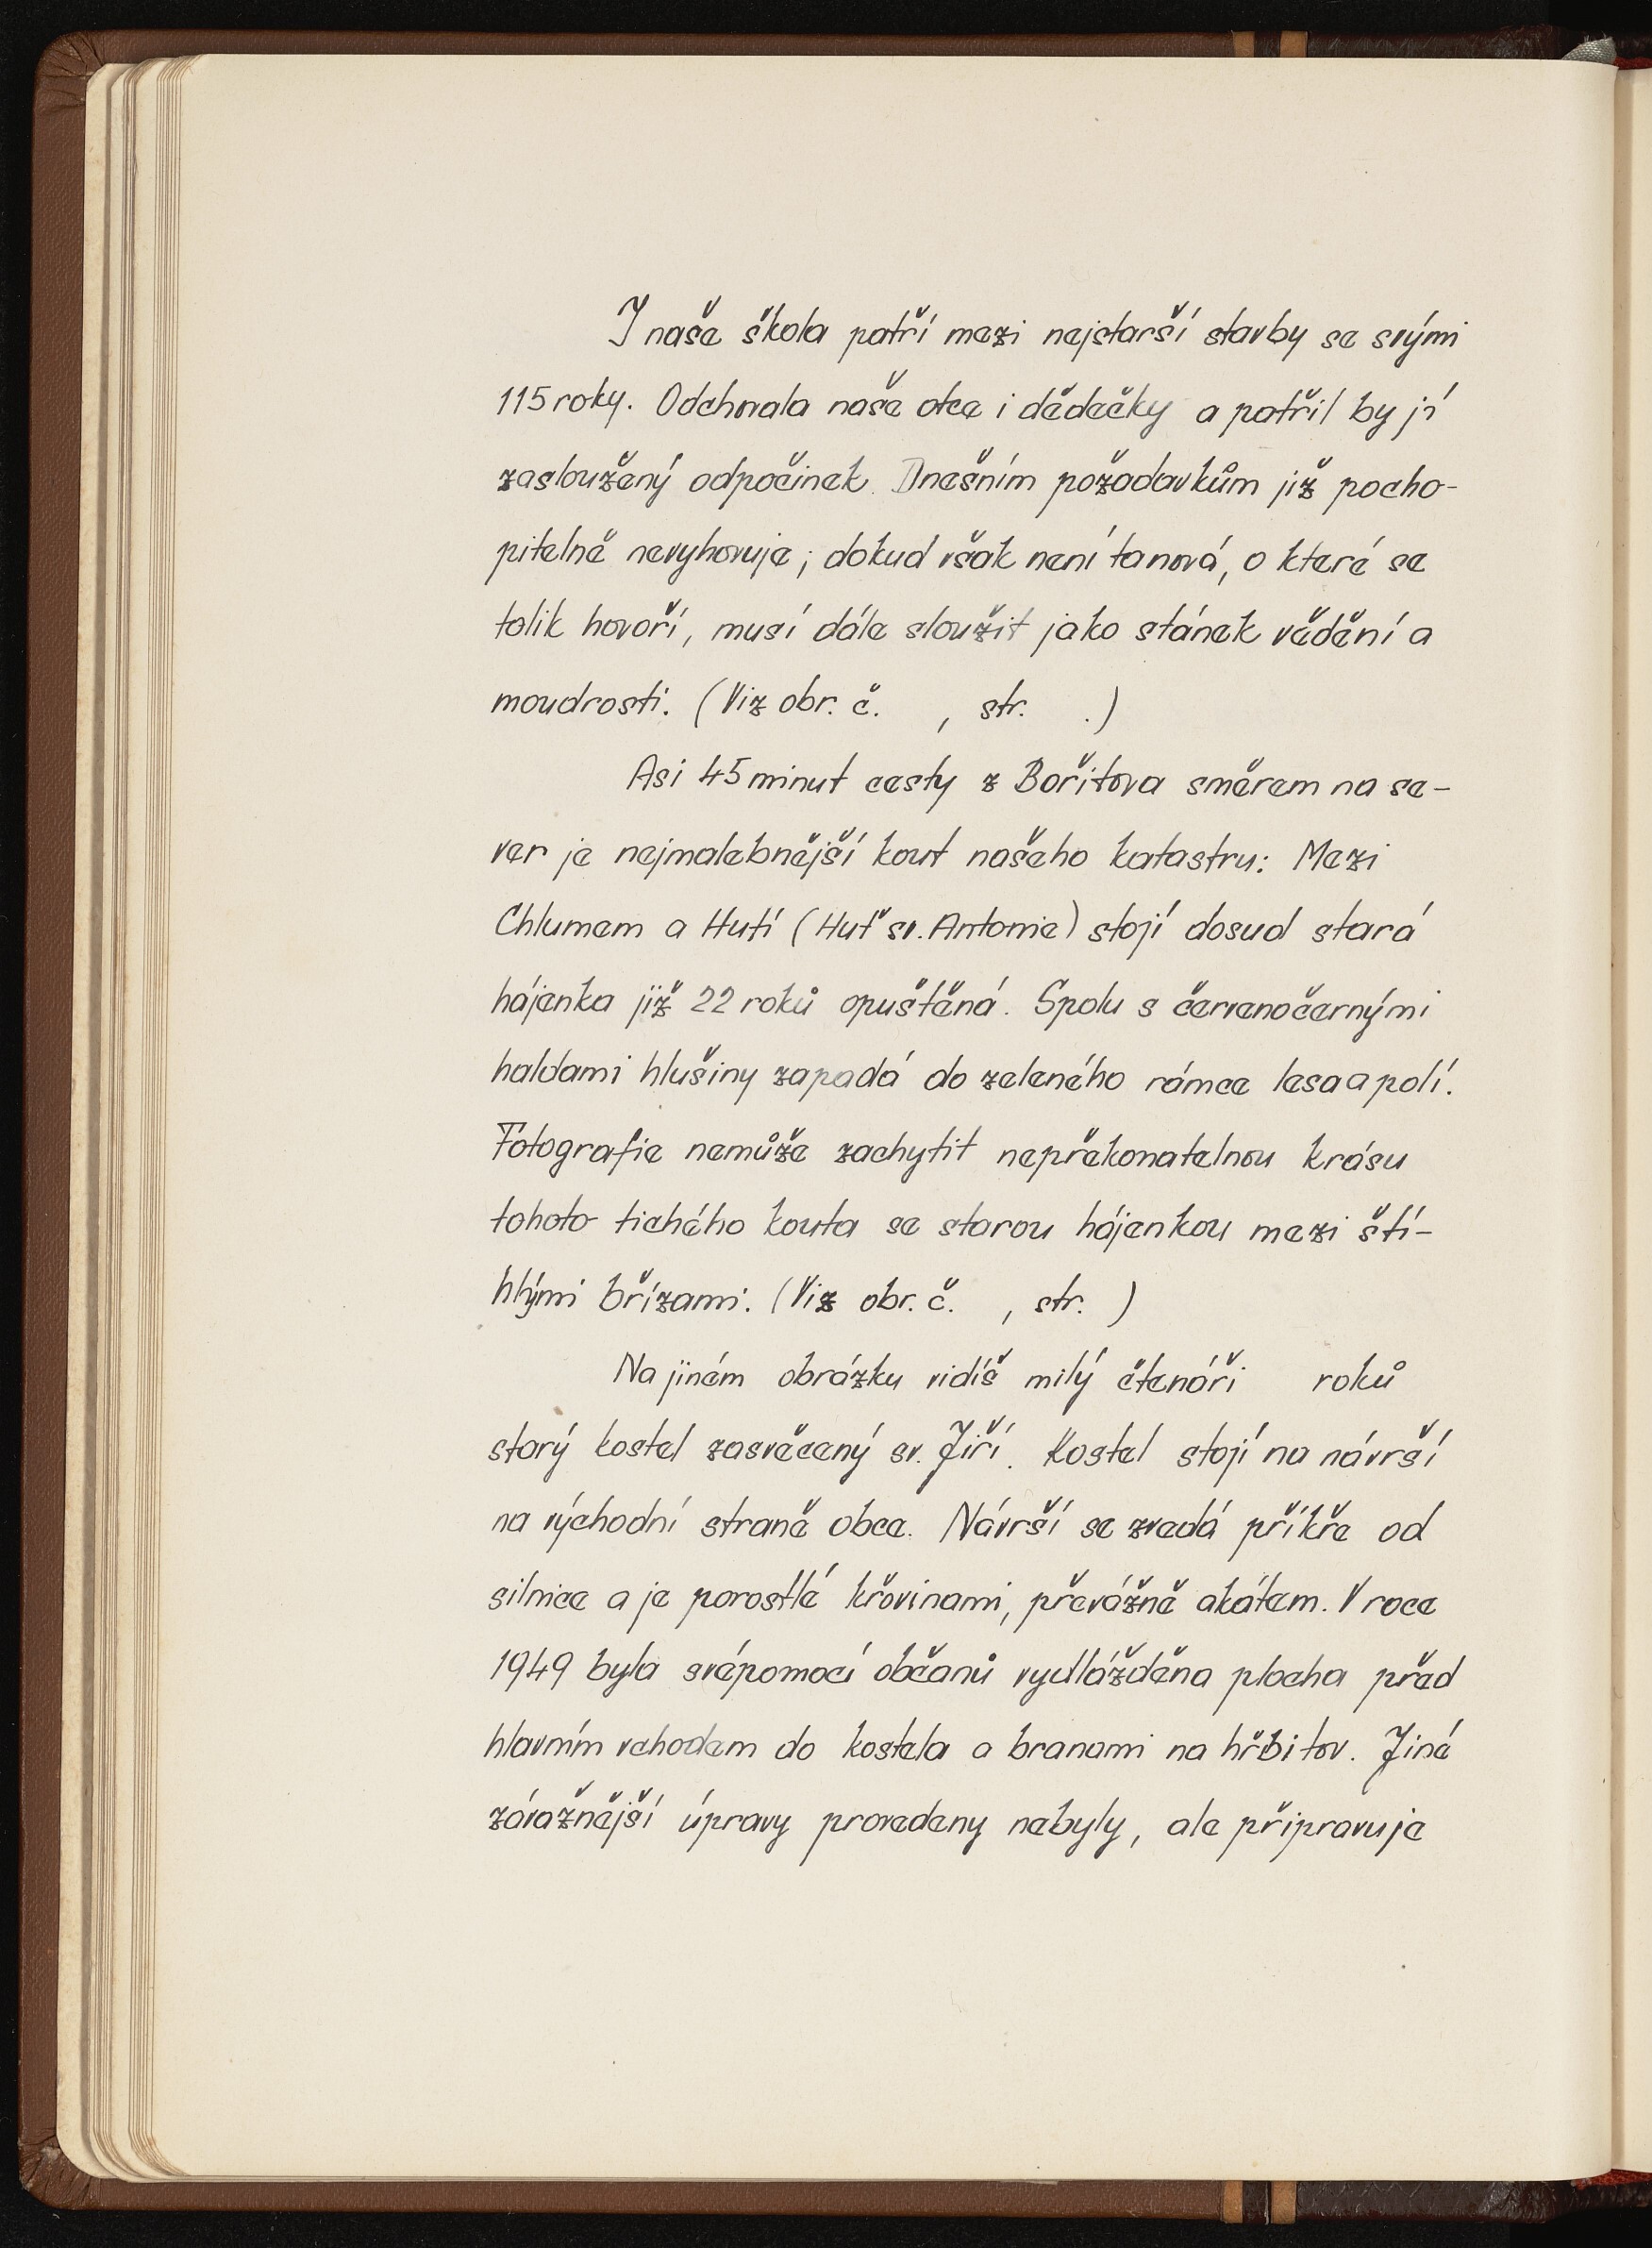 I naše škola patří mezi nejstarší stavby se svými
115 roky. Odchovala naše otce i dědečky a patřil by jí
zasloužený odpočinek. Dnešním požadavkům již pocho-
pitelně nevyhovuje; dokud však není ta nová, o které se
tolik hovoří, musí dále sloužit jako stánek vědění a
moudrosti. (Viz obr. č. , str. .)
Asi 45 minut cesty z Bořitova směrem na se-
ver je nejmalebnější kout našeho katastru: Mezi
Chlumem a Hutí (Huť sv. Antonie) stojí dosud stará
hájenka již 22 roků opuštěná. Spolu s červenočernými
haldami hlušiny zapadá do zeleného rámce lesa a polí.
Fotografie nemůže zachytit nepřekonatelnou krásu
tohoto tichého kouta se starou hájenkou mezi ští-
hlými břízami. (Viz obr. č. , str. )
Na jiném obrázku vidíš milý čtenáři roků
starý kostel zasvěcený sv. Jiří. Kostel stojí na návrší
na východní straně obce. Návrší se zvedá příkře od
silnice a je porostlé křovinami, převážně akátem. V roce
1949 byla svépomocí občanů vydlážděna plocha před
hlavním vchodem do kostela a branami na hřbitov. Jiné
závažnější úpravy provedeny nebyly, ale připravuje